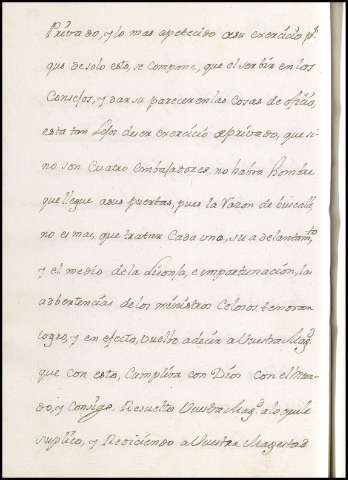 Privado, y lo mas apetecido desu exercicio pr
que de solo esto, se compone, que el serbir en los
Consejos, y dar su parecer en las cosas de oficio,
esta tan lejos de ser exercicio de privado, que si
no son Cuatro embaxadores, no habra hombre
que llegue a sus puertas, pues la Razon de buscalle
no es mas, que tratar Cada uno, su adelantamto
y el medio de la Lisonja, e importunacion, las
adbertencias de los ministros Celosos
logro, y en efecto, Vuelbo a decir a Vuestra Magd
que con esto, Cumplira con Dios con el mun-
do, y Consigo. Resuelto Vuestra Magd a lo que le
suplico, y Reduciendo a Vuestra Magestad